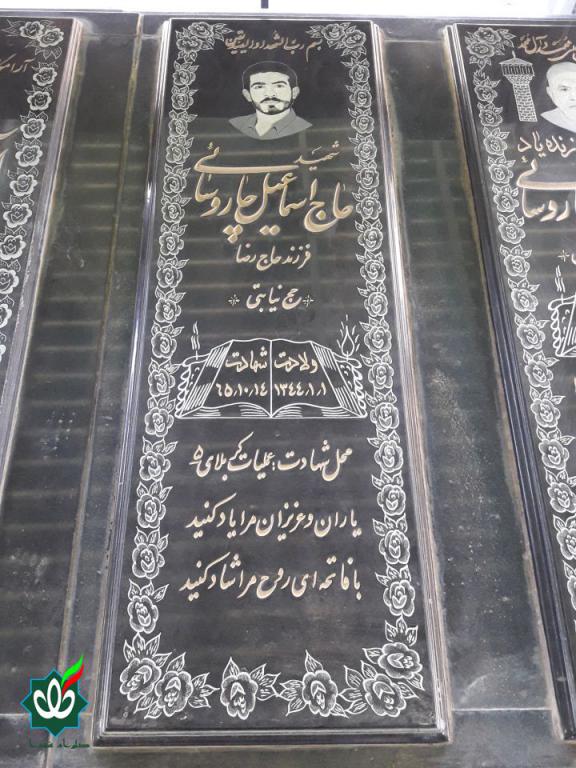 بسم رب الشهداء والصدیقین
شهید
حاج اسماعیل چاروسائی
فرزند حاج رضا
حج نیابتی
ولادت شهادت
۱۳۴۴/۱/۱ ۶۵/۱۰/۱۴
محل شهادت: عملیات کربلای ۵
یاران و عزیزان مرا یاد کنید
با فاتحه ای روح مرا شاد کنید
زنده یاد